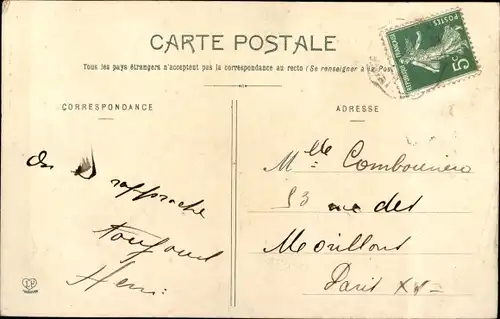 CARTE POSTALE
Tous les pays étrangers n'acceptent pas la correspondance au recto (Se renseigner à la Pos
CORRESPONDANCE
ADRESSE
POSTES
5c
On se rapproche
toujours
Henri
Mlle
53 rue des
Morillons
Paris XV